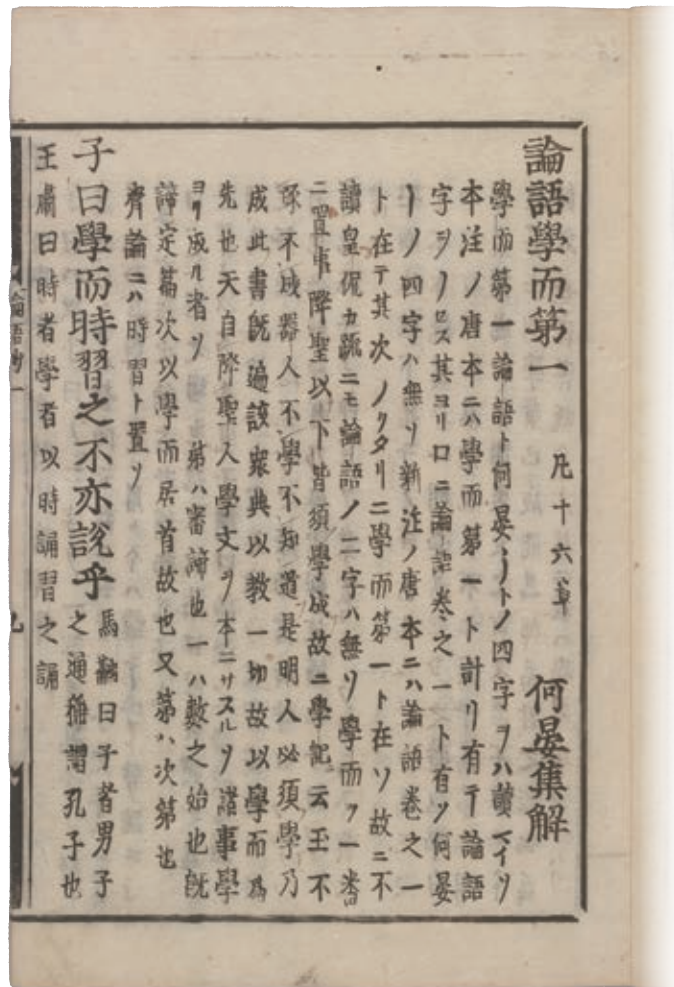 論語學而第一 凡十六章 何晏集解
學而第一論語ト何晏ーートノ四字ヲハ讀マイソ
本注ノ唐本ニハ學而第一ト計リ有テ論語
字ヲノヒス其ヨリ口ニ論語卷之一ト有ソ何晏
ーノ四字ハ無ソ新注ノ唐本ニハ論語卷之一
ト在テ其次ノクタリニ學而第一ト在ソ故ニ不
讀皇侃カ疏ニモ論語ノ二字ハ無ソ學而ヲ一番
ニ置事降聖以下皆須學成故ニ學記云玉不
琢不成器人不學不知道是明人必須學乃
成此書既遍該衆典以教一切故以學而爲
先也天自降聖人學文ヲ本ニサスルソ諸事學
ヨリ成ル者ソ 第ハ審諦也一ハ數之始也既
諦定篇次以學而居首故也又第ハ次第也
齊論ニハ時習ト置ソ
子曰學而時習之不亦說乎 馬融曰子者男子
之通稱謂孔子也
王肅曰時者學者以時誦習之誦
論語抄一
九